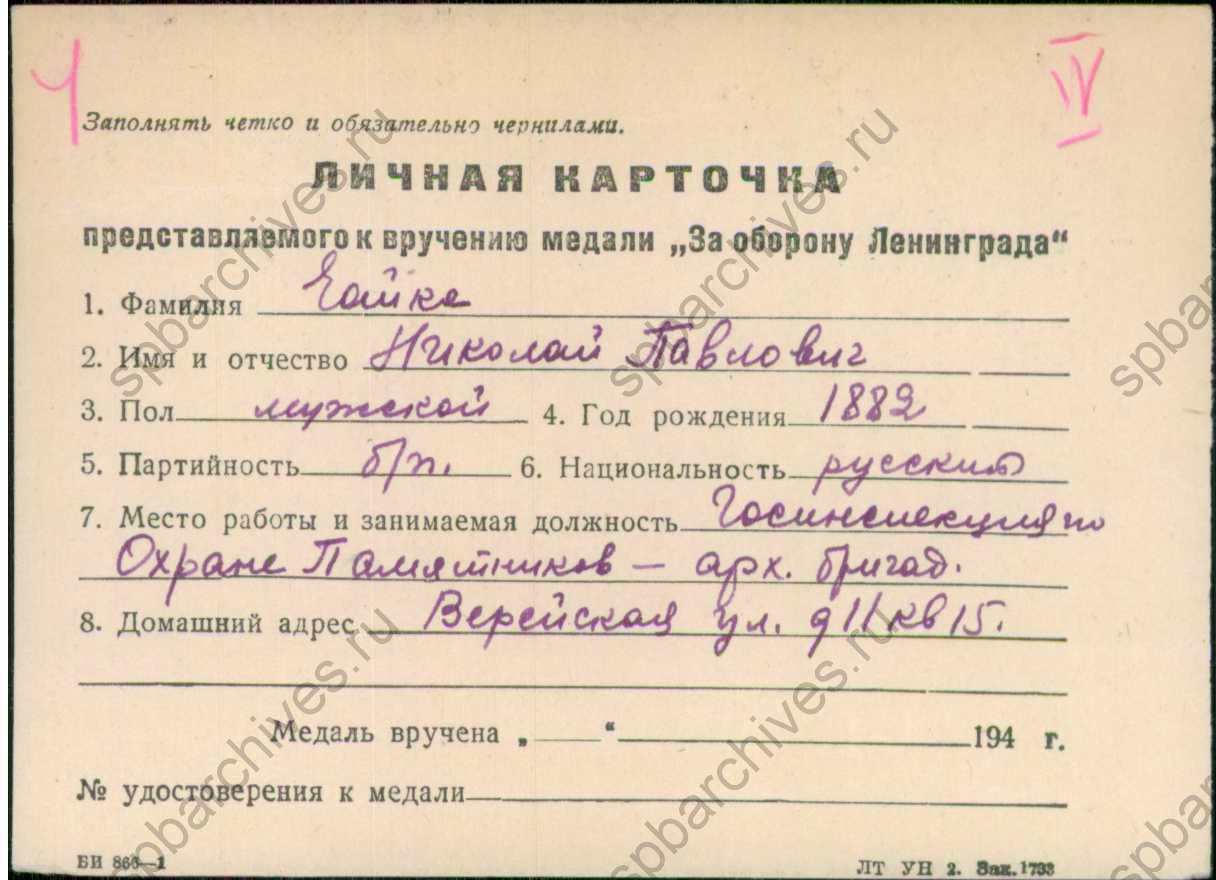 Ч
IV
Заполнять четко и обязательно чернилами.
ЛИЧНАЯ КАРТОЧКА
представляемого к вручению медали „За оборону Ленинграда“
1. Фамилия Чайка
2. Имя и отчество Николай Павлович
3. Пол мужской 4. Год рождения 1882
5. Партийность б/п. 6. Национальность русский
7. Место работы и занимаемая должность Госинспекция по
Охране Памятников – арх. бригад.
8. Домашний адрес Верейская ул. д 11 кв 15.
Медаль вручена „ “ 194 г.
№ удостоверения к медали
БИ 866—1
ЛТ УН 2. Зак. 1793
spbarchives.ru
spbarchives.ru
spbarchives.ru
spbarchives.ru